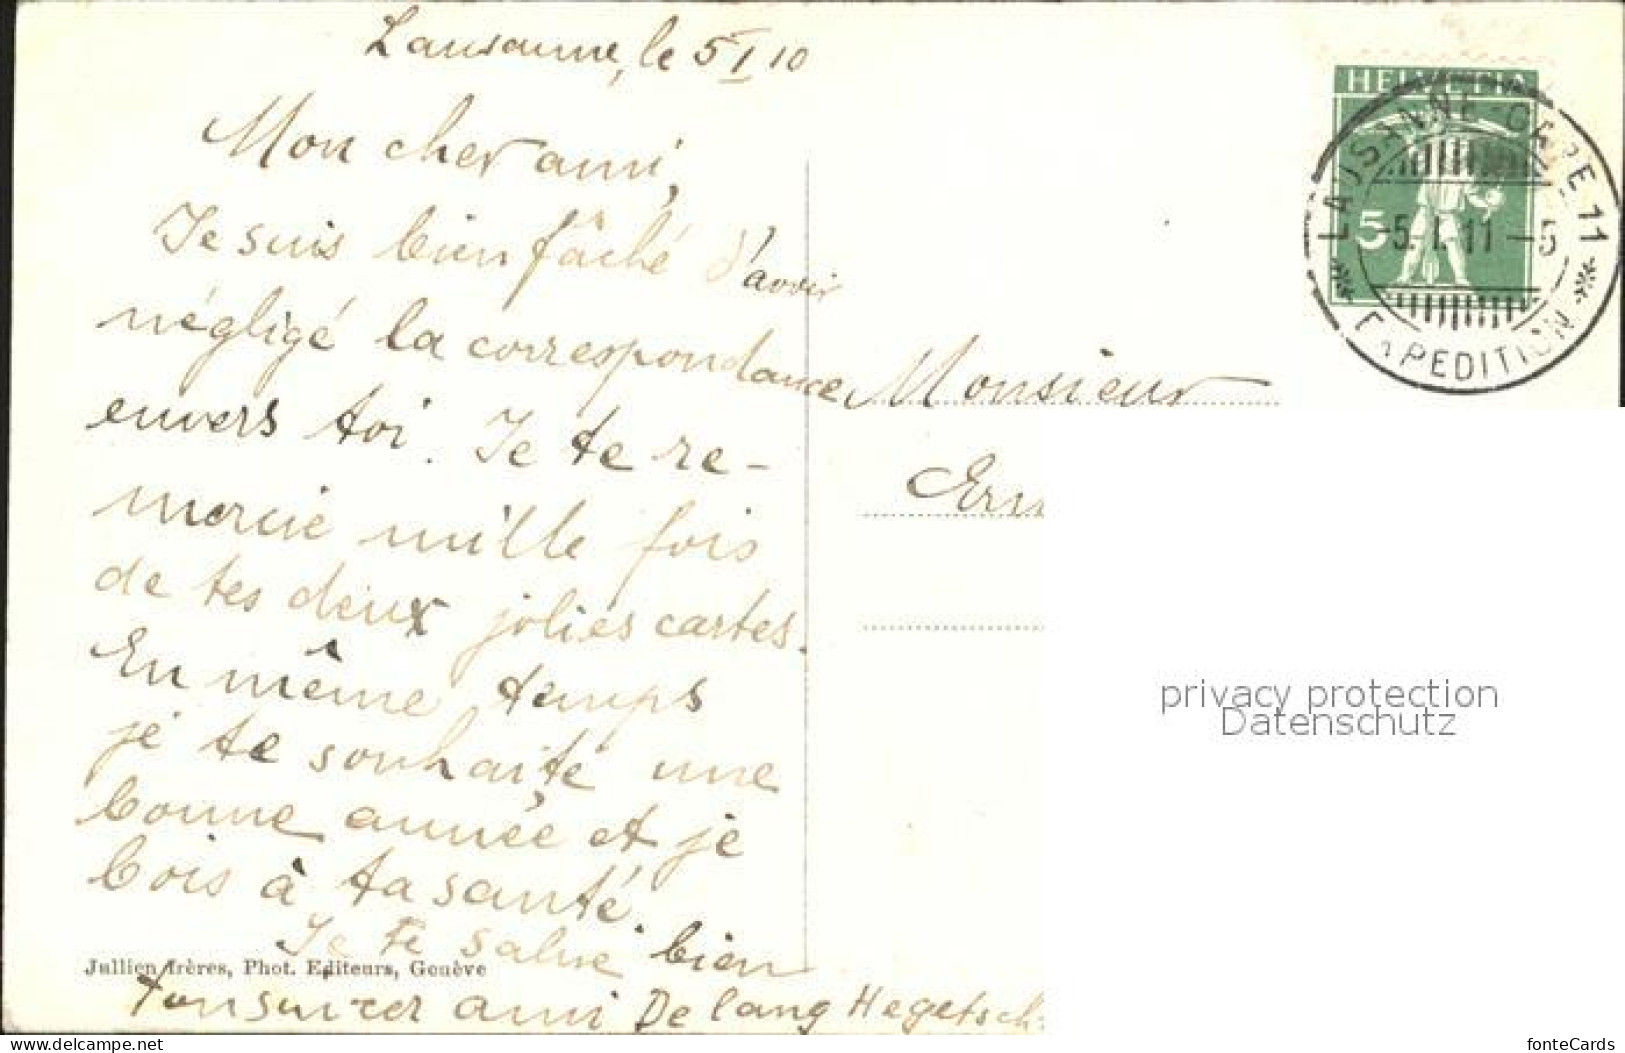 Lausanne, le 5 I 10
Mon cher ami,
Je suis bien fâché d'avoir
négligé la correspondance
envers toi. Je te re-
mercie mille fois
de tes deux jolies cartes.
En même temps
je te souhaite une
bonne année et je
bois à ta santé.
Je te salue bien
ton sincer ami De lang Hegetsch
Jullien frères, Phot. Editeurs, Genève
Monsieur
Ern
HELVETIA
5
LAUSANNE GARE 11
-5. I. 11 -5
EXPEDITION
privacy protection
Datenschutz
www.delcampe.net
fonteCards